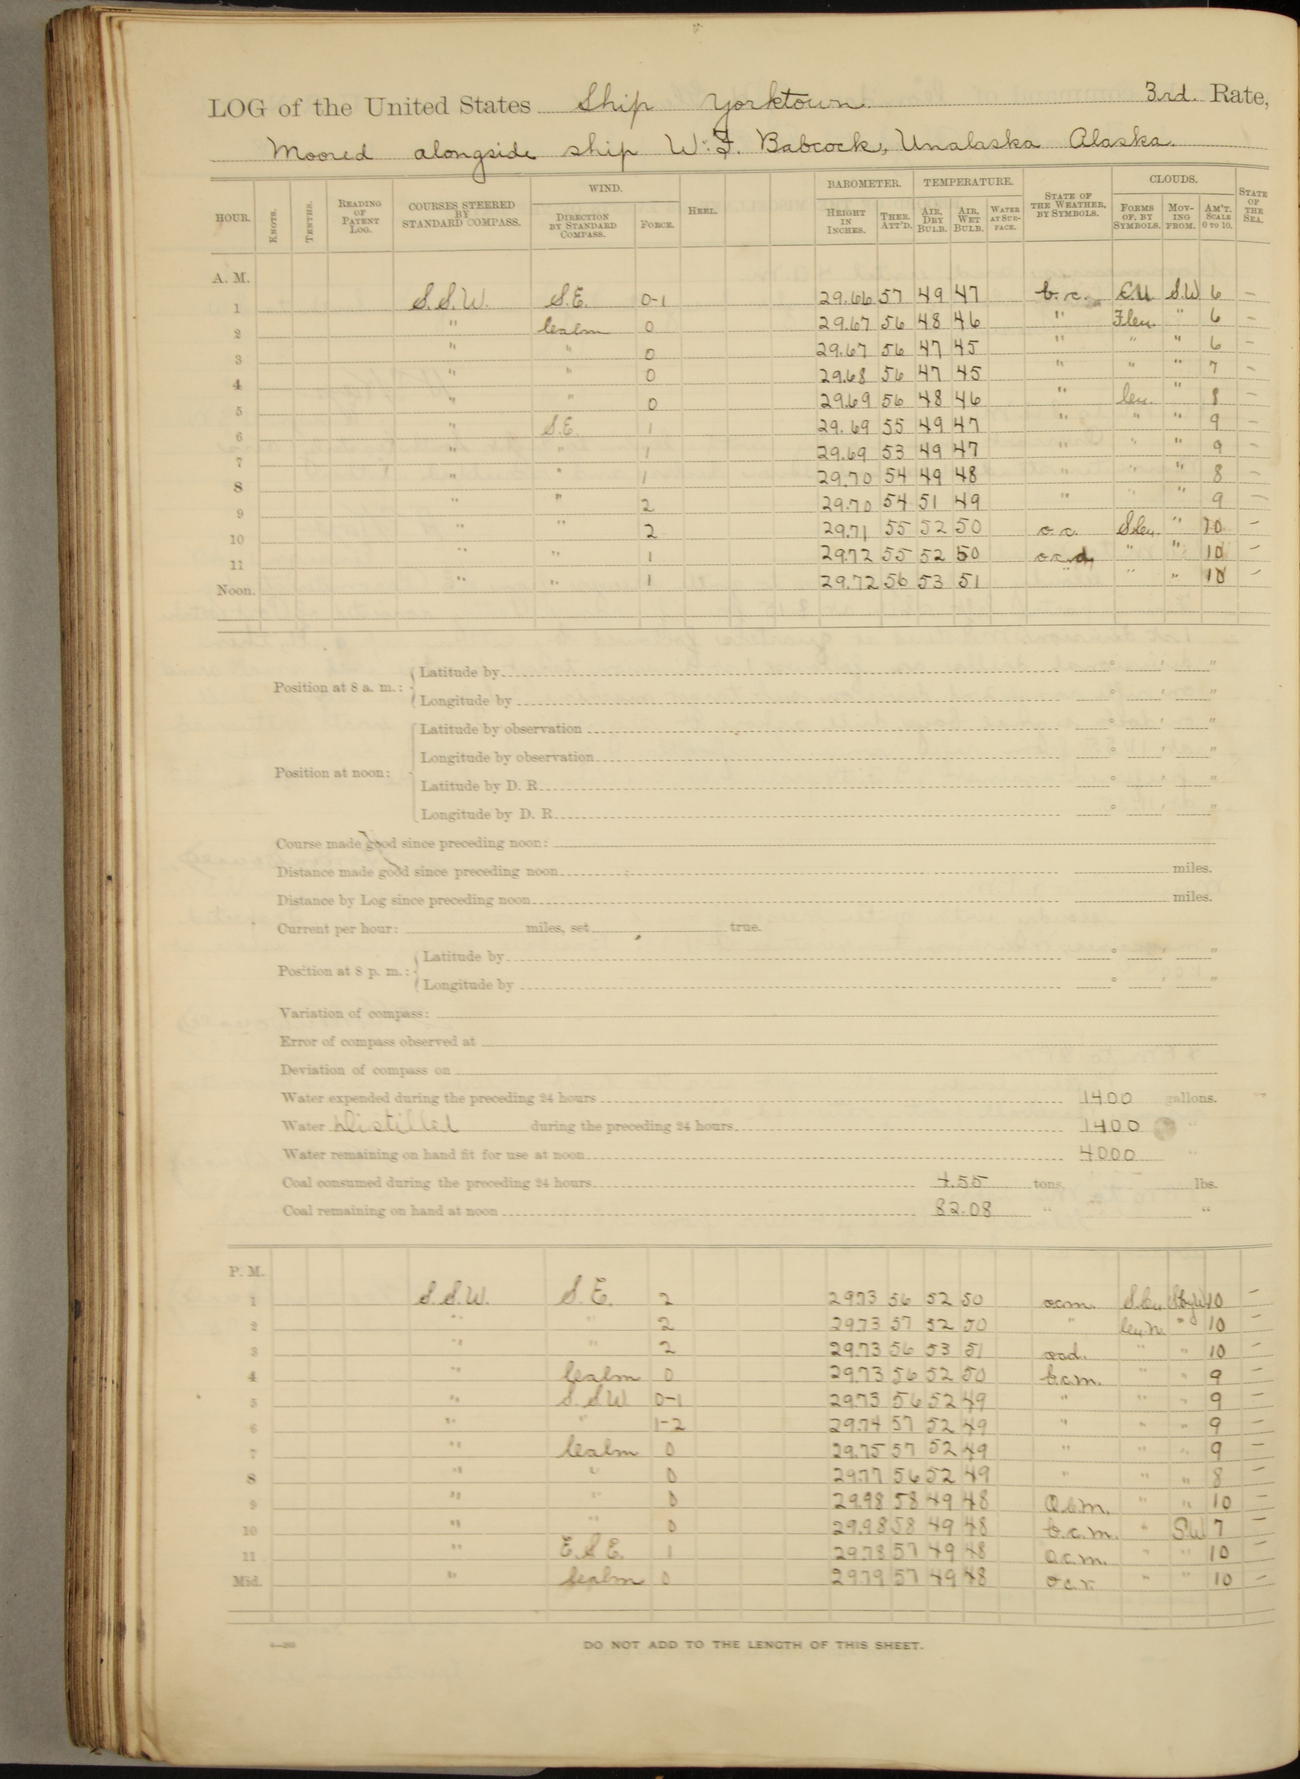 LOG of the United States Ship Yorktown. 3rd. Rate,
Moored alongside ship W. F. Babcock, Unalaska Alaska.
HOUR. KNOTS. TENTHS. READING OF PATENT LOG. COURSES STEERED BY STANDARD COMPASS. WIND. DIRECTION BY STANDARD COMPASS. FORCE. HEEL. BAROMETER. HEIGHT IN INCHES. THER. ATT'D. TEMPERATURE. AIR, DRY BULB. AIR, WET BULB. WATER AT SURFACE. STATE OF THE WEATHER, BY SYMBOLS. CLOUDS. FORMS OF, BY SYMBOLS. MOVING FROM. AM'T. SCALE 0 TO 10. STATE OF THE SEA.
A. M.
1 S.S.W. S.E. 0-1 29.66 57 49 47 b.c. CU S.W 6 –
2 " Calm 0 29.67 56 48 46 " " 6 –
3 " " 0 29.67 56 47 45 " " " 6 –
4 " " 0 29.68 56 47 45 " " " 7 –
5 " " 0 29.69 56 48 46 " Cu. " 8 –
6 " S.E. 1 29.69 55 49 47 " " " 9 –
7 " " 1 29.69 53 49 47 " " " 9 –
8 " " 1 29.70 54 49 48 " " " 8 –
9 " " 2 29.70 54 51 49 " " " 9 –
10 " " 2 29.71 55 52 50 o.c. S.Cu. " 10 –
11 " " 1 29.72 55 52 50 o.c.d. " " 10 –
Noon. " " 1 29.72 56 53 51 " " " 10 –
Position at 8 a. m.: Latitude by ° ' "
Longitude by ° ' "
Position at noon: Latitude by observation ° ' "
Longitude by observation ° ' "
Latitude by D. R. ° ' "
Longitude by D. R. ° ' "
Course made good since preceding noon:
Distance made good since preceding noon miles.
Distance by Log since preceding noon miles.
Current per hour: miles, set true.
Position at 8 p. m.: Latitude by ° ' "
Longitude by ° ' "
Variation of compass:
Error of compass observed at
Deviation of compass on
Water expended during the preceding 24 hours 1400 gallons.
Water Distilled during the preceding 24 hours 1400 "
Water remaining on hand fit for use at noon 4000 "
Coal consumed during the preceding 24 hours 4.55 tons, lbs.
Coal remaining on hand at noon 82.08 " "
P. M.
1 S.S.W. S.E. 2 29.73 56 52 50 ocm. S.Cu. SbyW 10 –
2 " " 2 29.73 57 52 50 " Cu.N. " 10 –
3 " " 2 29.73 56 53 51 ocd. " " 10 –
4 " Calm 0 29.73 56 52 50 b.c.m. " " 9 –
5 " S.SW 0-1 29.73 56 52 49 " " " 9 –
6 " " 1-2 29.74 57 52 49 " " " 9 –
7 " Calm 0 29.75 57 52 49 " " " 9 –
8 " " 0 29.77 56 52 49 " " " 8 –
9 " " 0 29.98 58 49 48 O.c.m. " " 10 –
10 " " 0 29.98 58 49 48 b.c.m. " S.W 7 –
11 " E.S.E. 1 29.78 57 49 48 o.c.m. " " 10 –
Mid. " Calm 0 29.79 57 49 48 o.c.r. " " 10 –
DO NOT ADD TO THE LENGTH OF THIS SHEET.